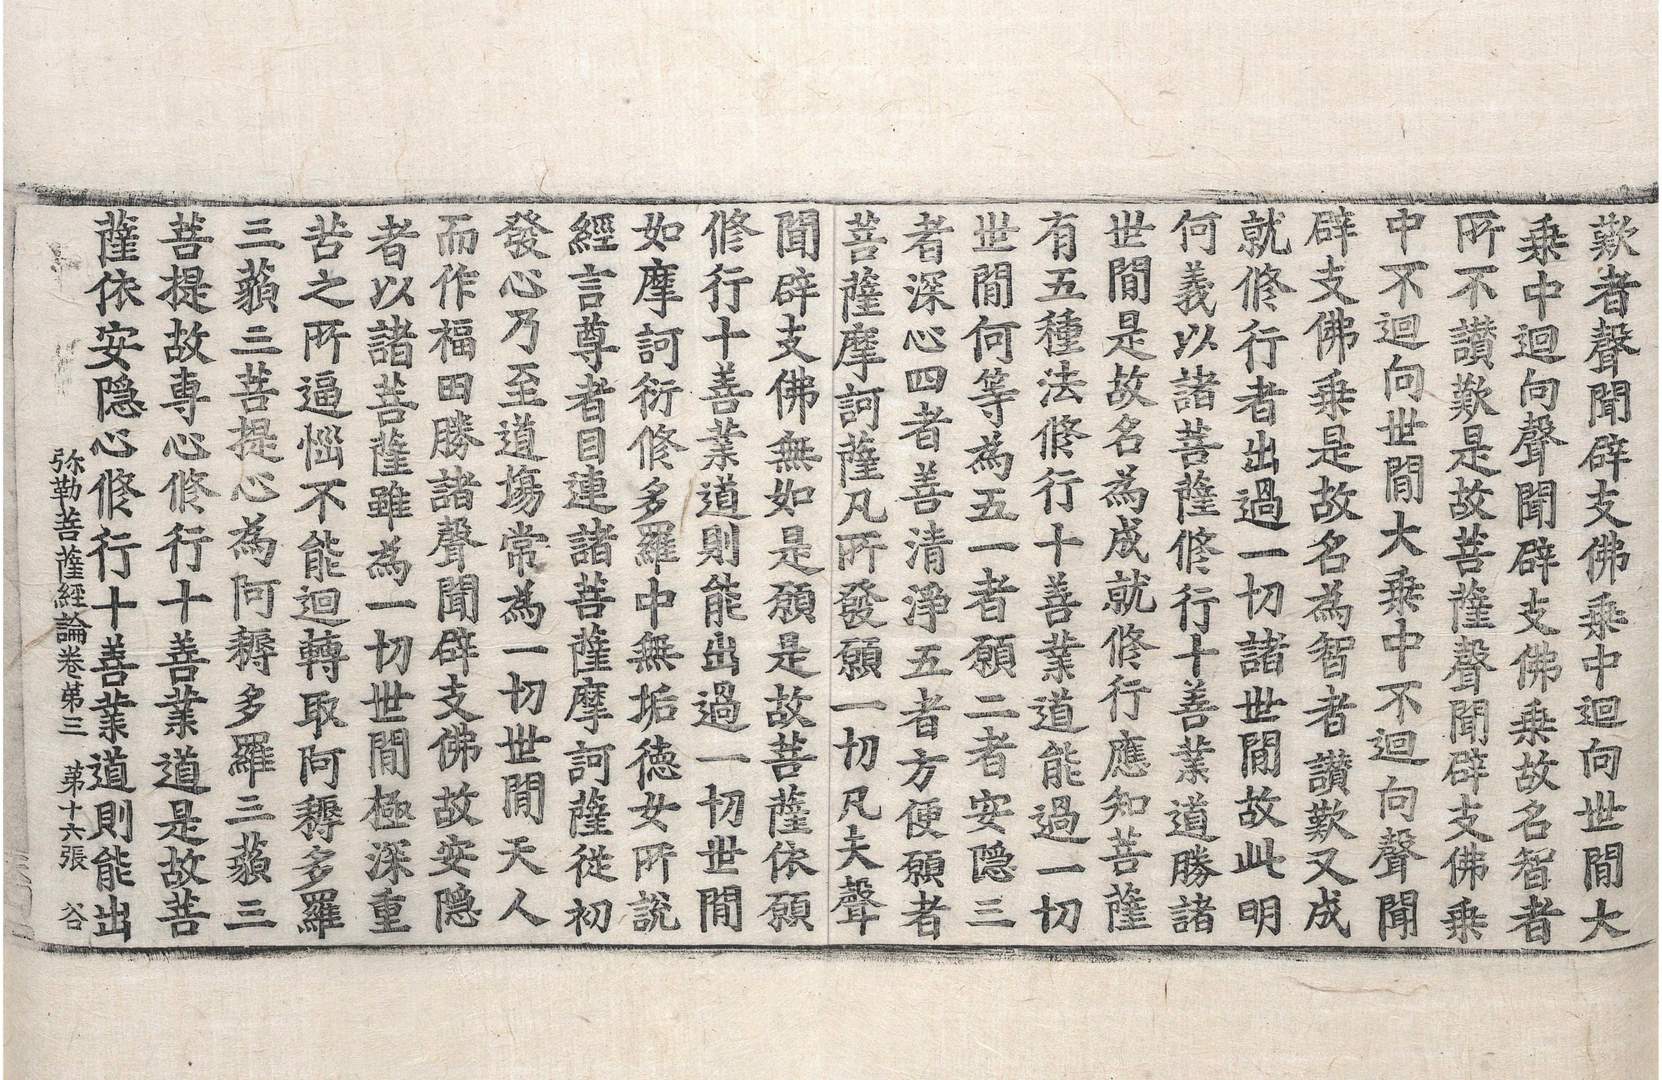 歎者聲聞辟支佛乗中迴向世閒大
乗中迴向聲聞辟支佛乗故名智者
所不讃歎是故菩薩聲聞辟支佛乗
中不迴向世閒大乗中不迴向聲聞
辟支佛乗是故名為智者讃歎又成
就修行者出過一切諸世閒故此明
何義以諸菩薩修行十善業道勝諸
世閒是故名為成就修行應知菩薩
有五種法修行十善業道能過一切
世閒何等為五一者願二者安隠三
者深心四者善清淨五者方便願者
菩薩摩訶薩凡所發願一切凡夫聲
聞辟支佛無如是願是故菩薩依願
修行十善業道則能出過一切世閒
如摩訶衍修多羅中無垢德女所說
經言尊者目連諸菩薩摩訶薩從初
發心乃至道場常為一切世閒天人
而作福田勝諸聲聞辟支佛故安隠
者以諸菩薩雖為一切世閒極深重
苦之所逼惱不能迴轉取阿耨多羅
三藐三菩提心為阿耨多羅三藐三
菩提故専心修行十善業道是故菩
薩依安隠心修行十善業道則能出
弥勒菩薩經論卷第三 第十六張 谷